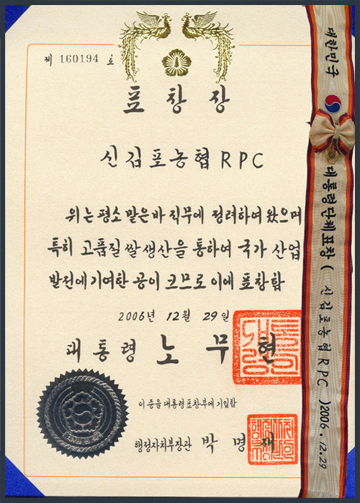 제 160194 호
표창장
신김포농협 RPC
위는 평소 맡은바 직무에 정려하여 왔으며
특히 고품질 쌀 생산을 통하여 국가 산업
발전에 기여한 공이 크므로 이에 표창함
2006년 12월 29일
대통령 노무현
이 증을 대통령표창부에 기입함
행정자치부장관 박명재
대한민국
대통령단체표창 ( 신김포농협 RPC ) 2006. 12. 29